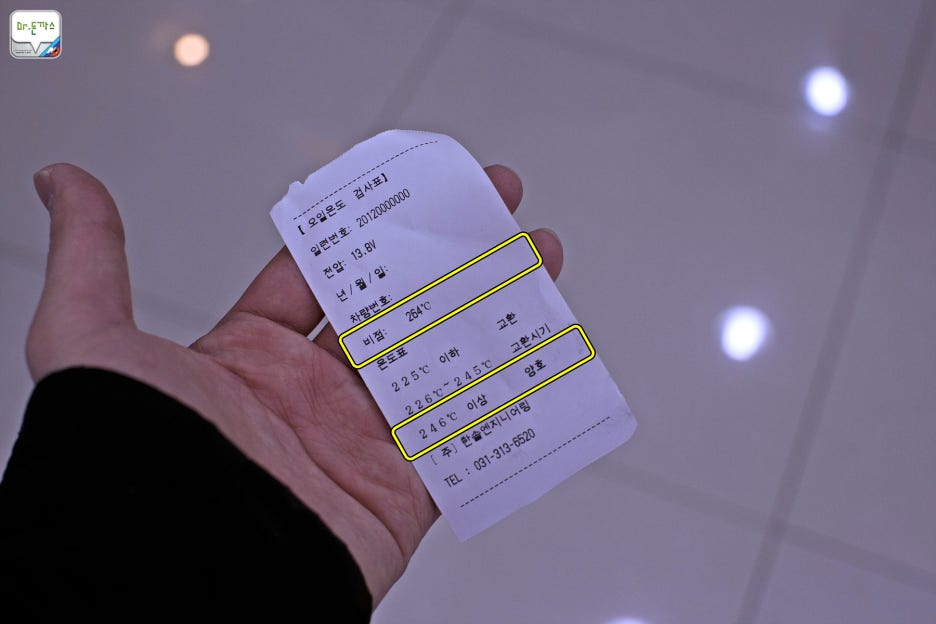 Dr.돈까스
[ 오일온도 검사표]
일련번호: 20120000000
전압: 13.8V
년/월/일:
차량번호:
비점: 264℃
온도표 교환
225℃ 이하 교환시기
226℃~245℃ 양호
246℃ 이상
[ 주] 한솔엔지니어링
TEL : 031-313-6520